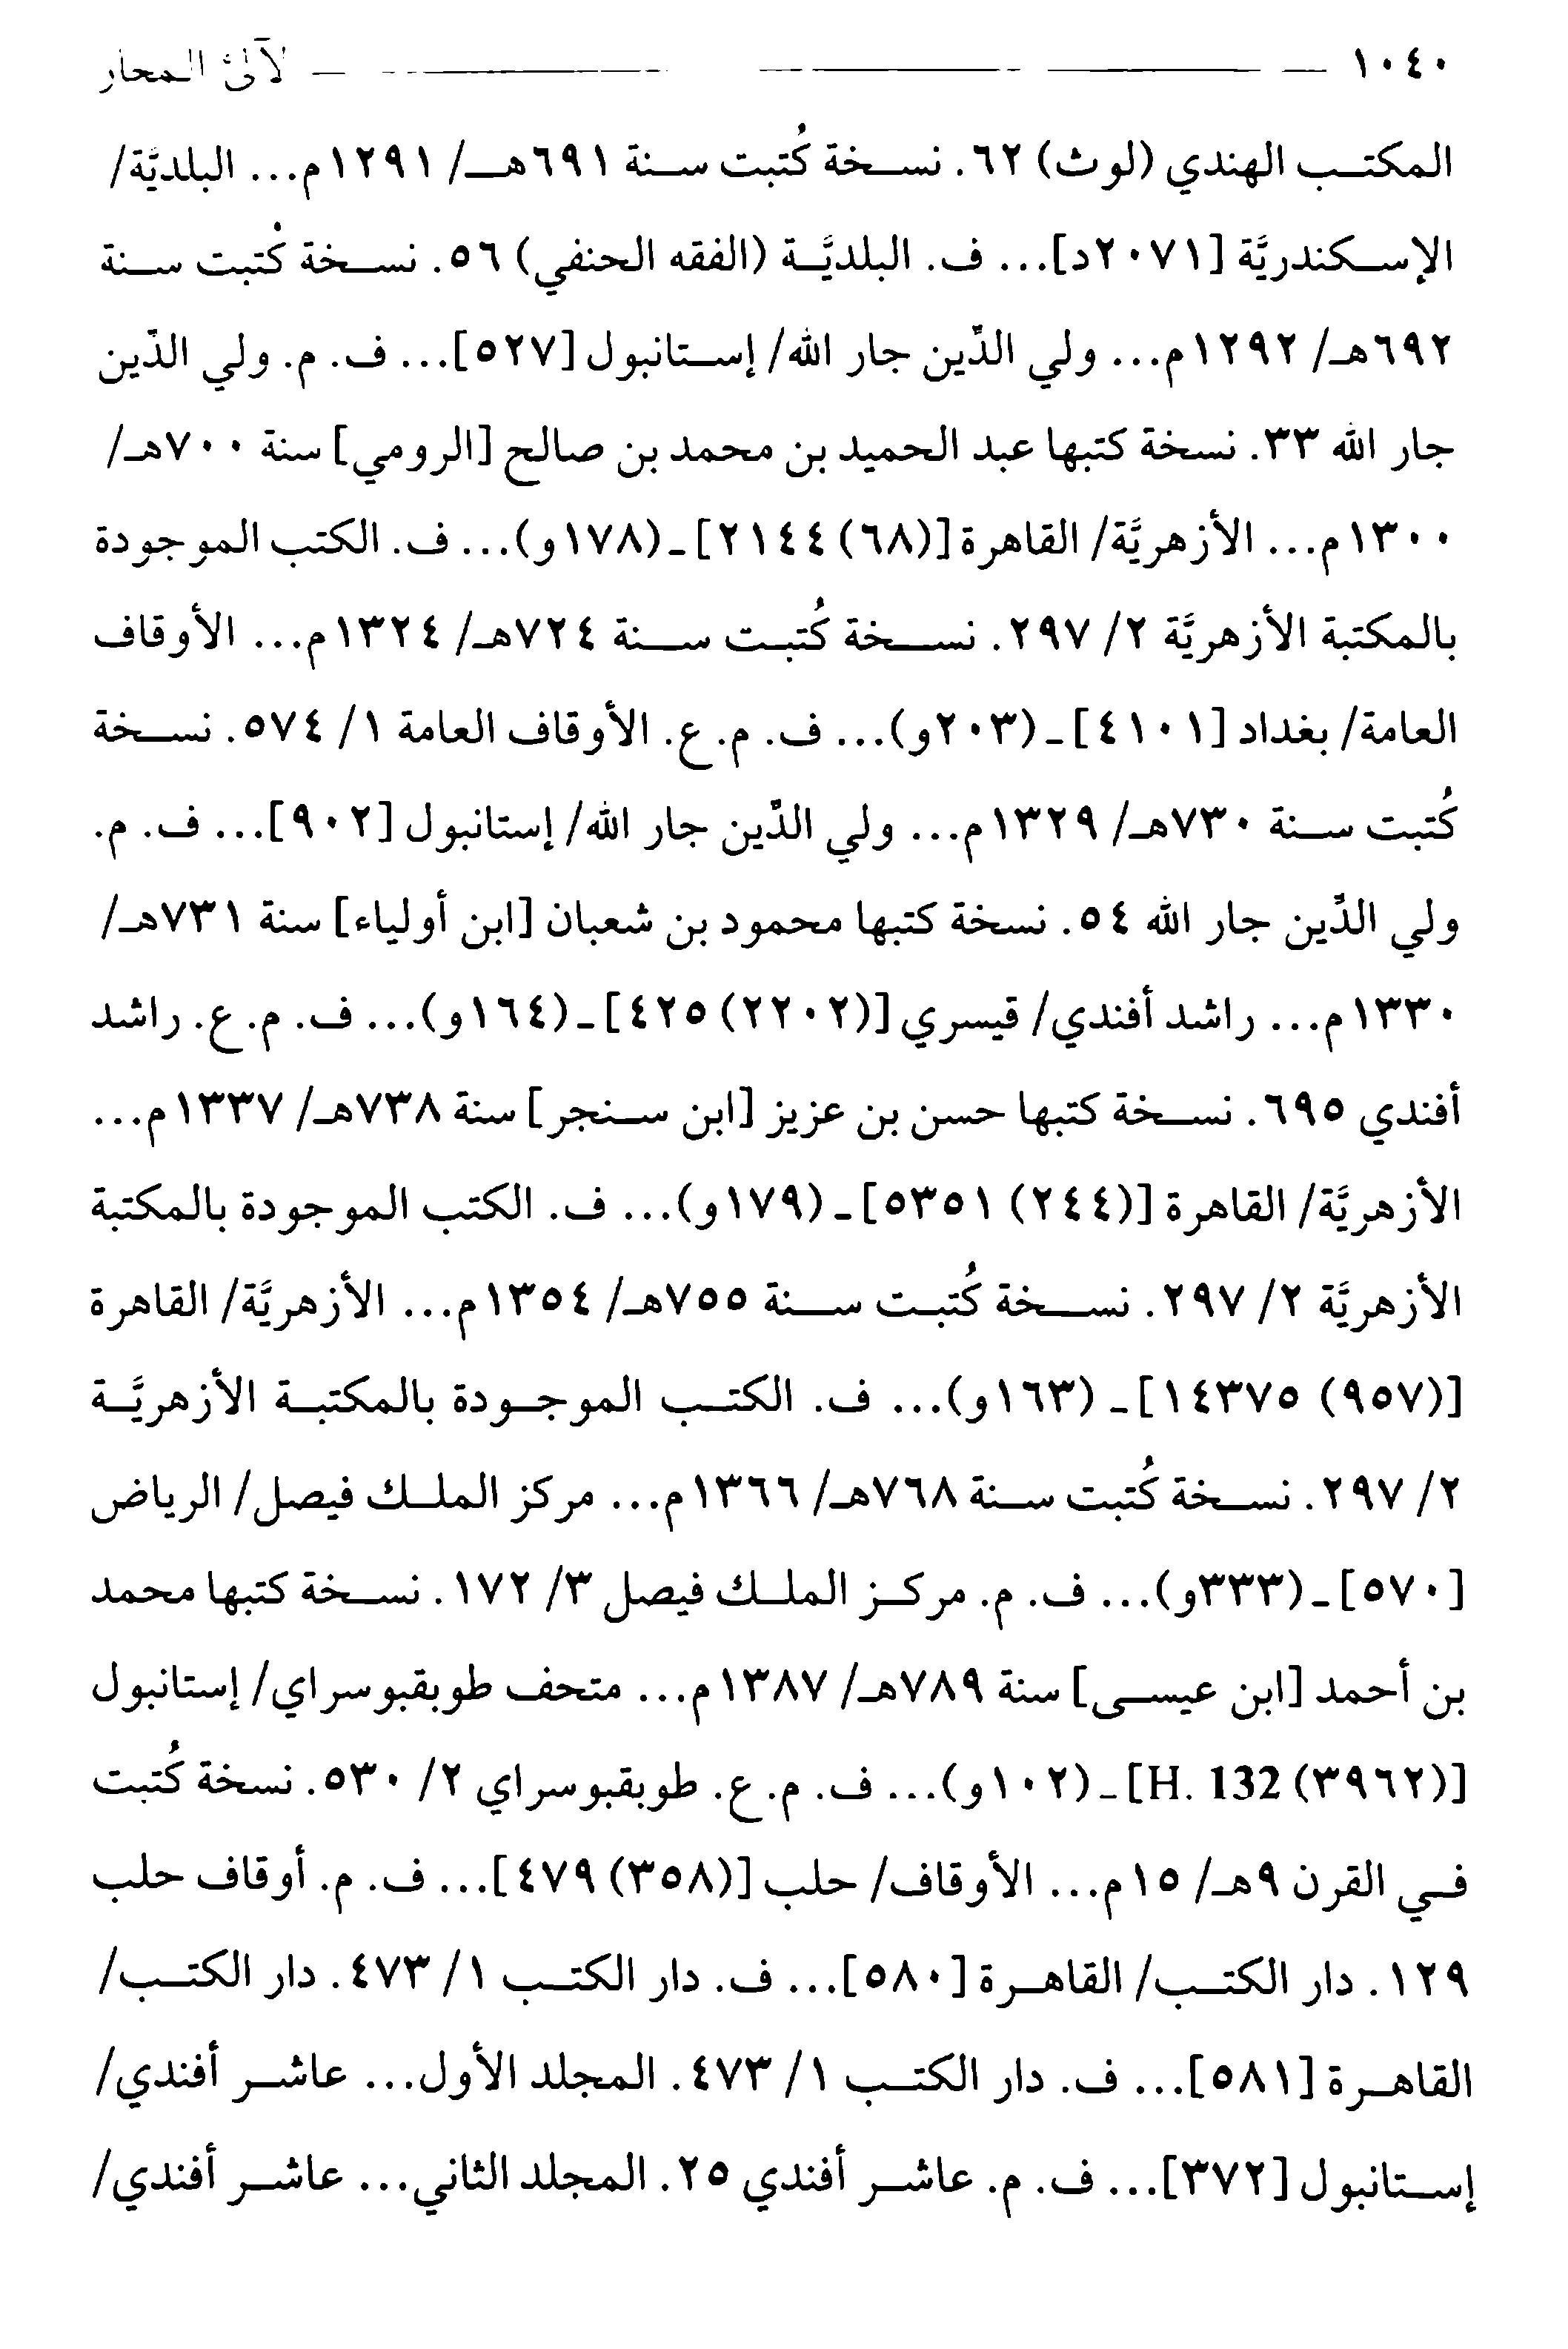 ١٠٤٠ لآلئ المحار
المكتب الهندي (لوث) ٦٢. نسخة كُتبت سنة ٦٩١هـ/ ١٢٩١م... البلديَّة/
الإسكندريَّة [٢٠٧١د]... ف. البلديَّة (الفقه الحنفي) ٥٦. نسخة كُتبت سنة
٦٩٢هـ/ ١٢٩٢م... ولي الدِّين جار الله/ إستانبول [٥٢٧]... ف. م. ولي الدِّين
جار الله ٣٣. نسخة كتبها عبد الحميد بن محمد بن صالح [الرومي] سنة ٧٠٠هـ/
١٣٠٠م... الأزهريَّة/ القاهرة [(٦٨) ٢١٤٤] ـ (١٧٨و)... ف. الكتب الموجودة
بالمكتبة الأزهريَّة ٢/ ٢٩٧. نسخة كُتبت سنة ٧٢٤هـ/ ١٣٢٤م... الأوقاف
العامة/ بغداد [٤١٠١] ـ (٢٠٣و)... ف. م. ع. الأوقاف العامة ١/ ٥٧٤. نسخة
كُتبت سنة ٧٣٠هـ/ ١٣٢٩م... ولي الدِّين جار الله/ إستانبول [٩٠٢]... ف. م.
ولي الدِّين جار الله ٥٤. نسخة كتبها محمود بن شعبان [ابن أولياء] سنة ٧٣١هـ/
١٣٣٠م... راشد أفندي/ قيسري [(٢٢٠٢) ٤٢٥] ـ (١٦٤و)... ف. م. ع. راشد
أفندي ٦٩٥. نسخة كتبها حسن بن عزيز [ابن سنجر] سنة ٧٣٨هـ/ ١٣٣٧م...
الأزهريَّة/ القاهرة [(٢٤٤) ٥٣٥١] ـ (١٧٩و)... ف. الكتب الموجودة بالمكتبة
الأزهريَّة ٢/ ٢٩٧. نسخة كُتبت سنة ٧٥٥هـ/ ١٣٥٤م... الأزهريَّة/ القاهرة
[(٩٥٧) ١٤٣٧٥] ـ (١٦٣و)... ف. الكتب الموجودة بالمكتبة الأزهريَّة
٢/ ٢٩٧. نسخة كُتبت سنة ٧٦٨هـ/ ١٣٦٦م... مركز الملك فيصل/ الرياض
[٥٧٠] ـ (٣٣٣و)... ف. م. مركز الملك فيصل ٣/ ١٧٢. نسخة كتبها محمد
بن أحمد [ابن عيسى] سنة ٧٨٩هـ/ ١٣٨٧م... متحف طوبقبوسراي/ إستانبول
[(٣٩٦٢) H. 132] ـ (١٠٢و)... ف. م. ع. طوبقبوسراي ٢/ ٥٣٠. نسخة كُتبت
في القرن ٩هـ/ ١٥م... الأوقاف/ حلب [(٣٥٨) ٤٧٩]... ف. م. أوقاف حلب
١٢٩. دار الكتب/ القاهرة [٥٨٠]... ف. دار الكتب ١/ ٤٧٣. دار الكتب/
القاهرة [٥٨١]... ف. دار الكتب ١/ ٤٧٣. المجلد الأول... عاشر أفندي/
إستانبول [٣٧٢]... ف. م. عاشر أفندي ٢٥. المجلد الثاني... عاشر أفندي/